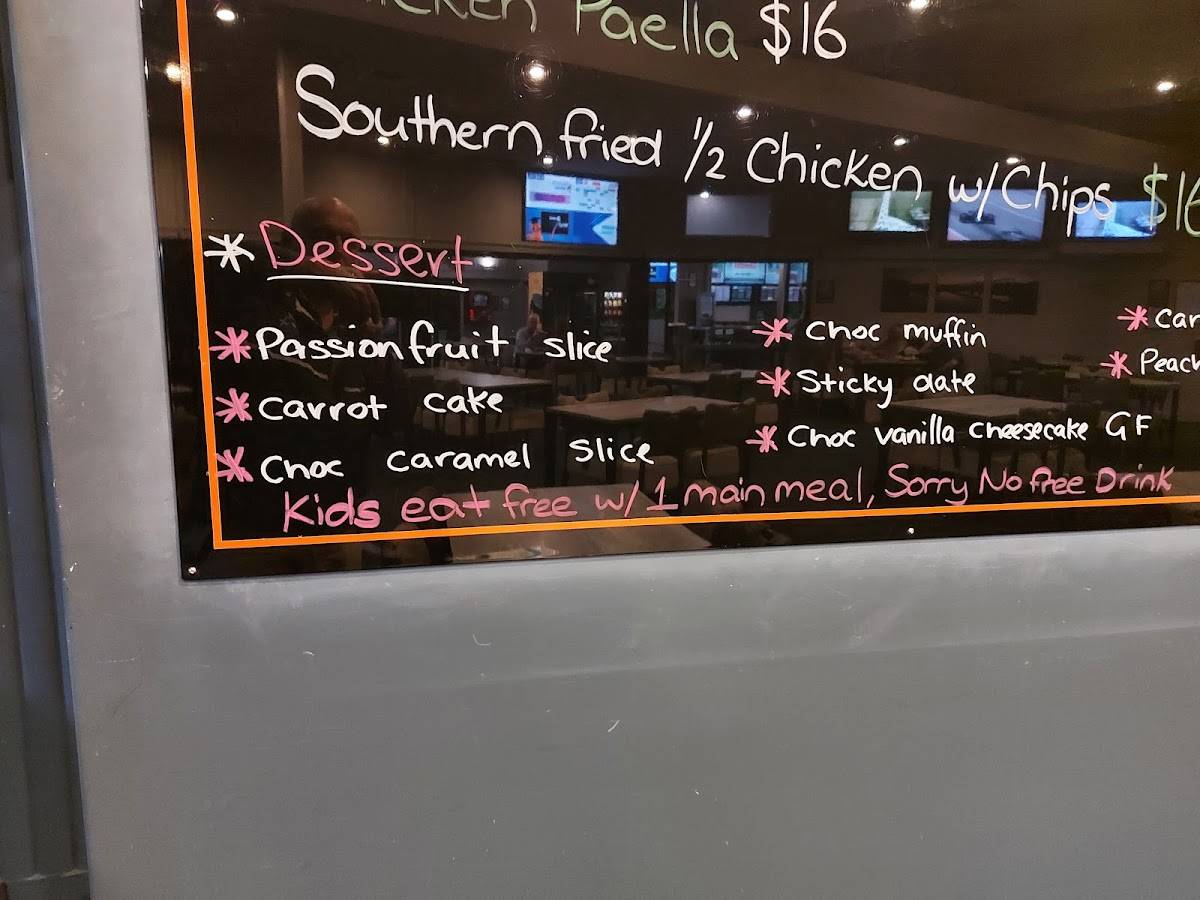 Paella $16
Southern fried 1/2 Chicken w/Chips $16
* Dessert
* Passionfruit slice
* Carrot cake
* Choc caramel slice
* Choc muffin
* Sticky date
* Choc vanilla cheesecake GF
Kids eat free w/ 1 main meal, Sorry No free Drink